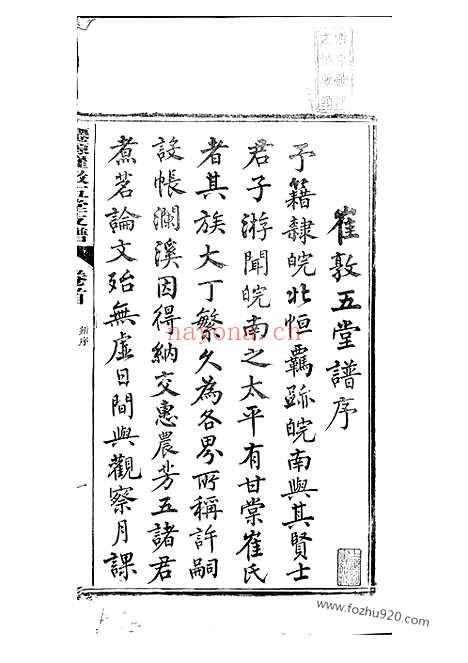 崔敦五堂譜序
予籍隸皖北恒羈跡皖南與其賢士
君子游聞皖南之太平有甘棠崔氏
者其族大丁繁久為各界所稱許嗣
設帳瀾溪因得納交惠農芳五諸君
煮茗論文殆無虛日間與觀察月課
卷首
序
一
nayona.cn
www.fozhu920.com